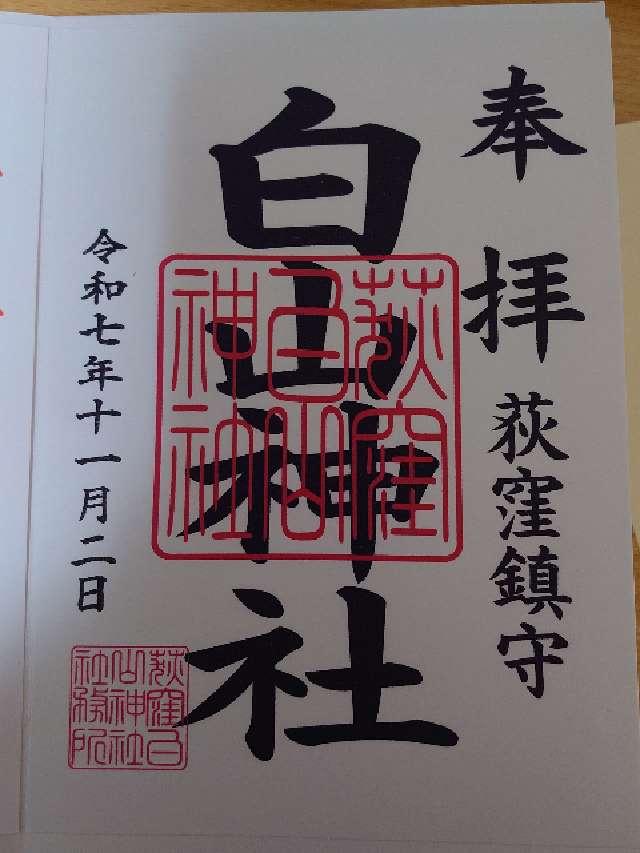 奉拝
荻窪鎮守
白山神社
荻窪
白山
神社
令和七年十一月二日
荻窪白
山神社
社務所